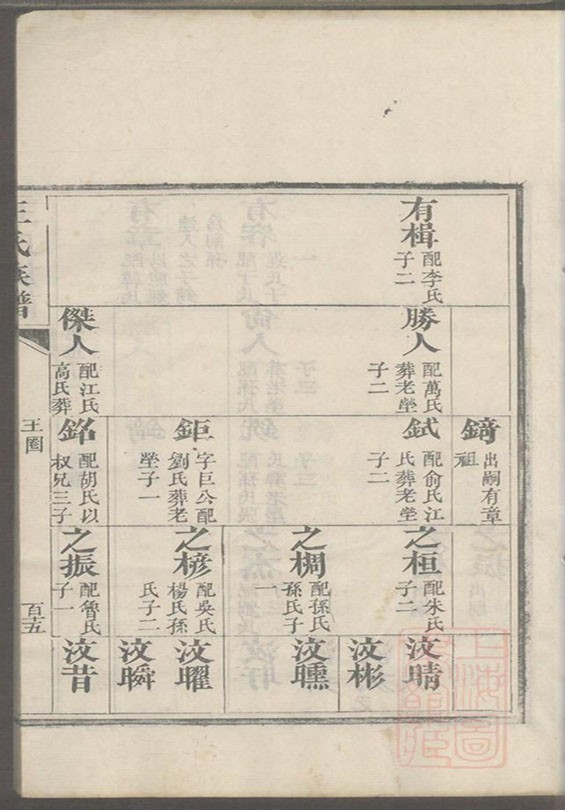 有楫
配李氏
子二
勝人
配萬氏
葬老塋
子二
傑人
配江氏
高氏葬
錡
出嗣有章
祖
鉽
配俞氏江
氏葬老塋
子二
鉅
字巨公配
劉氏葬老
塋子一
銘
配胡氏以
权兄三子
之桓
配朱氏
子二
之椆
配孫氏
孫氏子
一
之㮠
配吳氏
楊氏孫
氏子二
之振
配詹氏
子一
汶晴
汶彬
汶曛
汶曜
汶瞬
汶昔
王氏族譜
王圈
百五
上海圖